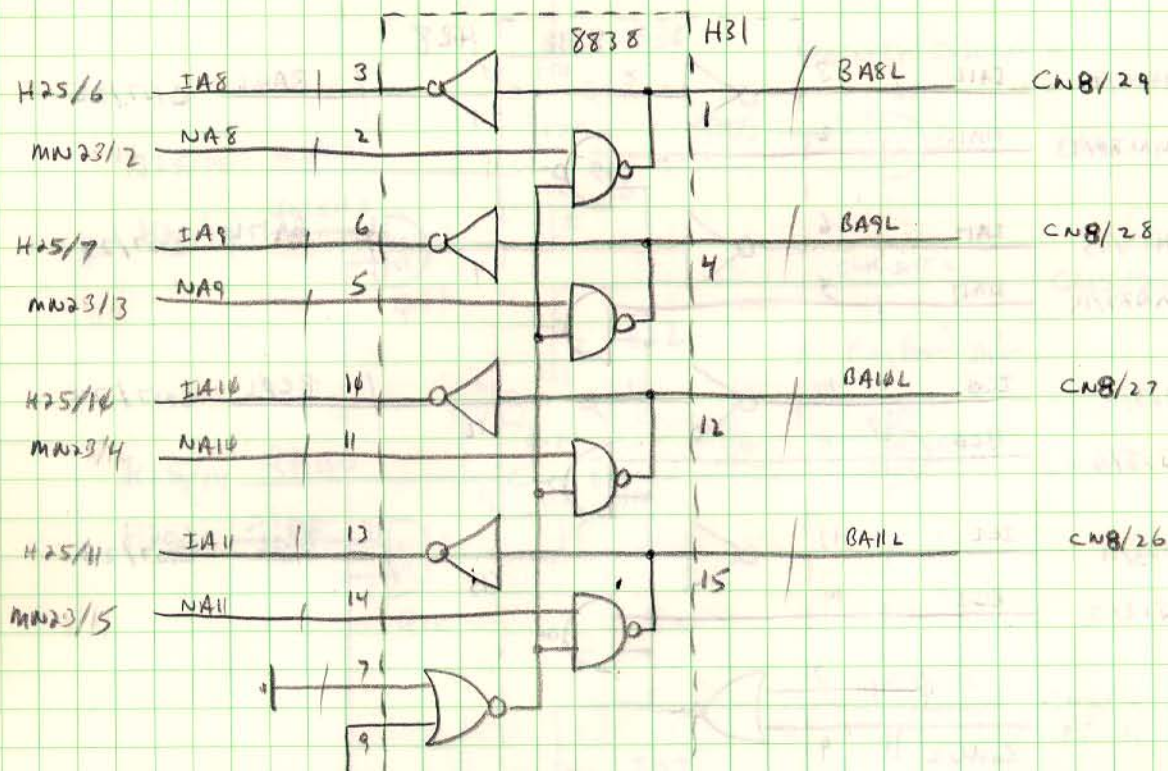 8838 H31
H25/6 IA8 3 BA8L CN8/29
1
MN23/2 NA8 2
H25/7 IA9 6 BA9L CN8/28
4
MN23/3 NA9 5
H25/10 IA10 10 BA10L CN8/27
12
MN23/4 NA10 11
H25/11 IA11 13 BA11L CN8/26
15
MN23/15 NA11 14
7
9